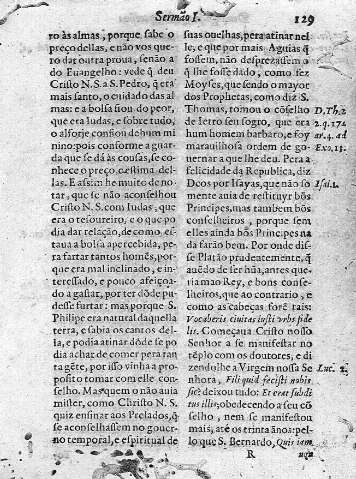 Sermão I. 129
ro às almas, porque sabe o
preço dellas, e não vos que-
ro dar outra proua, senão a
do Euangelho: vede q̃ deu
Cristo N. S. a S. Pedro, q̃ era
mais santo, o cuidado das al
mas: e a bolsa siou do peor,
que era Iudas, e sobre tudo,
o alforje confiou de hum mi
nino: pois conforme a guar-
da que se dá às cousas, se co-
nhece o preço, e estima del-
las. E assim he muito de no-
tar, que se não aconselhou
Christo N. S. com Iudas, que
era o tesoureiro, e o que po
dia dar relação, de como es-
taua a bolsa apercebida, pe-
ra fartar tantos homẽs, por-
que era mal inclinado, e in-
teressado, e pouco afeiçoa-
do a gastar, por ter dõde pu-
desse furtar: mas porque S.
Philipe era natural daquella
terra, e sabia os cantos del-
la, e podia atinar dõde se po
dia achar de comer pera tan
ta gẽte, por isso vinha a pro-
posito tomar com elle con-
selho. Mas quem o não auia
mister, como Christo N. S.
quiz ensinar aos Prelados, q̃
se aconselhassem no gouer-
no temporal, e espiritual de
suas ouelhas, pera atinar nel
le, e que por mais Aguias q̃
fossem, não desprezassem o
q̃ lhe fosse dado, como fez
Moyses, que sendo o mayor
dos Prophetas, como diz S.
Thomas, tomou o cõselho
de Ietro seu sogro, que era
hum homem barbaro, e foy
marauilhosa ordem de go-
uernar a que lhe deu. Pera a
felicidade da Republica, diz
Deos por Isayas, que não so
mente auia de restituyr bõs
Principes, mas tambem bõs
conselheiros, porque sem
elles ainda bõs Principes na
da farão bem. Por onde dis-
se Platão prudentemente, q̃
auẽdo de ser hũa, antes que-
ria mao Rey, e bons conse-
lheiros, que ao contrario, e
como as cabeças forẽ tais:
Vocaberis ciuitas iusti vrbs fide
lis. Começaua Cristo nosso
Senhor a se manifestar no
tẽplo com os doutores, e di
zendolhe a Virgem nossa Se
nhora, Fili quid fecisti nobis
sic? deixou tudo: Et erat subdi
tus illis; obedecendo a seu cõ
selho, nem se manifestou
mais, atè os trinta ãnos: pel-
lo que S. Bernardo, Quis iam
R
D. Th. 2
2. q. 174
ar. 4. ad
Exo. 18.
Isai. 1.
Luc. 2.